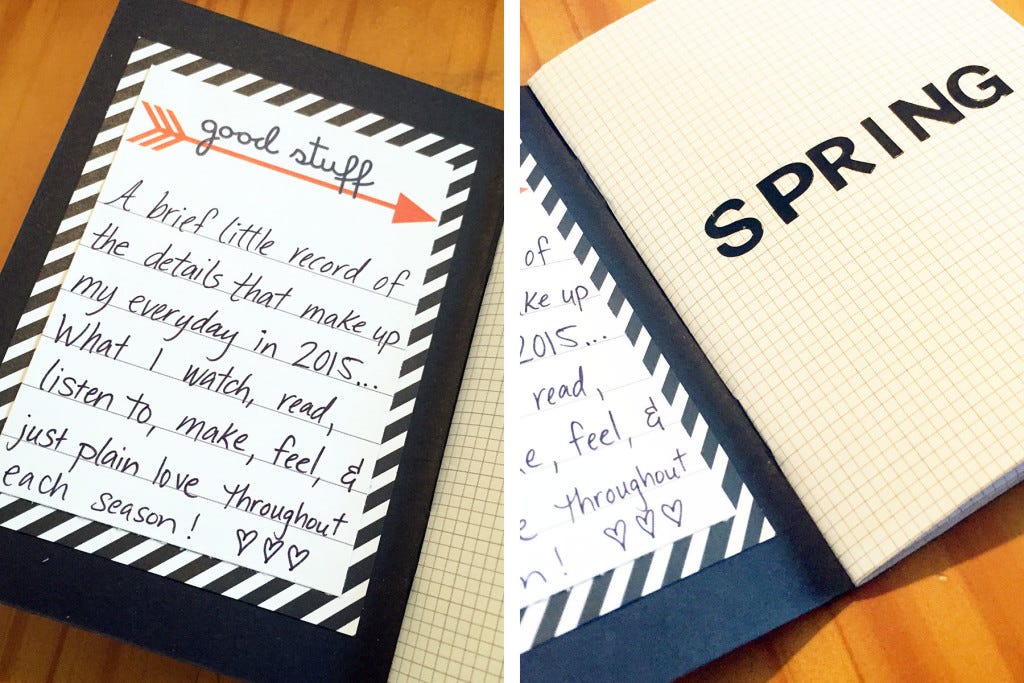 good stuff
A brief little record of
the details that make up
my everyday in 2015...
What I watch, read,
listen to, make, feel, &
just plain love throughout
each season! ♡♡♡
SPRING
of
ke up
2015...
read,
e, feel, &
e throughout
n! ♡♡♡